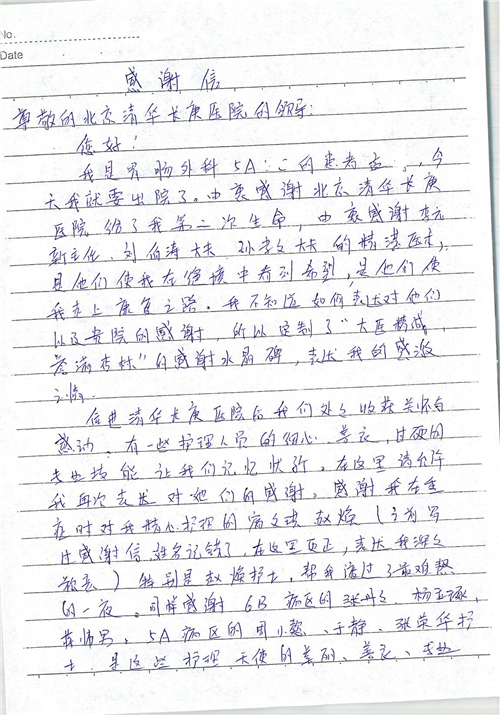 No.
Date
感谢信
尊敬的北京清华长庚医院的领导:
您好!
我是胃肠外科5A 的患者 今
天我就要出院了。由衷感谢北京清华长庚
医院给了我第二次生命,由衷感谢李元
新主任、刘伯涛大夫 大夫的精湛医术,
是他们使我在绝境中看到希望,是他们使
我走上康复之路。我不知道如何表达对他们
以及贵院的感谢,所以定制了“大医精诚,
誉满杏林”的感谢水晶碑,表达我的感激
之情。
住进清华长庚医院后我们处处收获关怀与
感动,有一些护理人员的细心、善良、过硬的
专业技能让我们记忆犹新。在这里请允许
我再次表达对她们的感谢。感谢我在重
症时对我精心护理的 赵焕(之前写
过感谢信,姓名记错了,在这里更正,表达我深深
歉意)特别是赵焕护士,帮我渡过了最难熬
的一夜。同样感谢6B病区的张丹丹、杨
薛帅男,5A病区的周小懿、于静、张荣华护
士,是这些护理天使的美丽、善良、专业